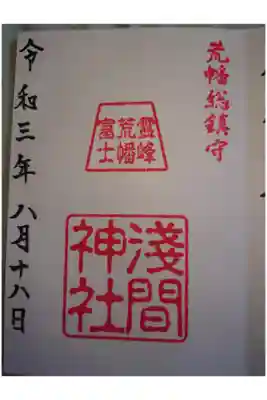 荒幡総鎮守
霊峰
荒幡
富士
淺間
神社
令和三年八月十八日